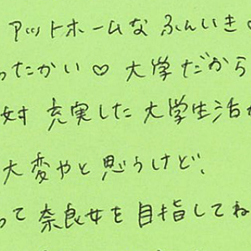 アットホームなふんいき♡
ったかい♡ 大学だから
対 充実した大学生活が
大変やと思うけど、
って奈良女を目指してね